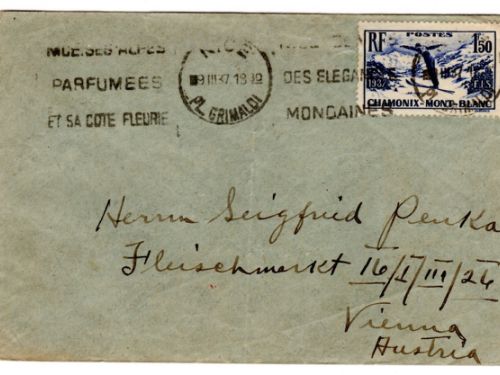 NICE.SES ALPES
PARFUMEES
ET SA COTE FLEURIE
9 III 37
PL. GRIMALDI
DES ELEGANCES
MONDAINES
POSTES
RF
1f50
CHAMONIX-MONT-BLANC
Herrn Seigfried Penka
Fleischmerkt 16/I/III/26
Vienna
Austria